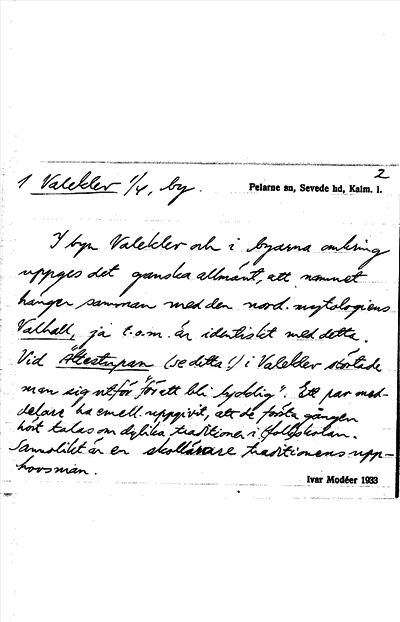 2
1 Valekler 1/4, by.
Pelarne sn, Sevede hd, Kalm. l.
I byn Valekler och i byarna omkring
uppges det ganska allmänt, att namnet
hänger samman med den nord. mytologiens
Valhall, ja t.o.m. är identiskt med detta.
Vid Ättestupan (se detta!) i Valekler störtade
man sig utför "för att bli lycklig". Ett par med-
delare ha emell. uppgivit, att de första gången
hört talas om dylika traditioner i folkskolan.
Sannolikt är en skollärare traditionens upp-
hovsman.
Ivar Modéer 1933